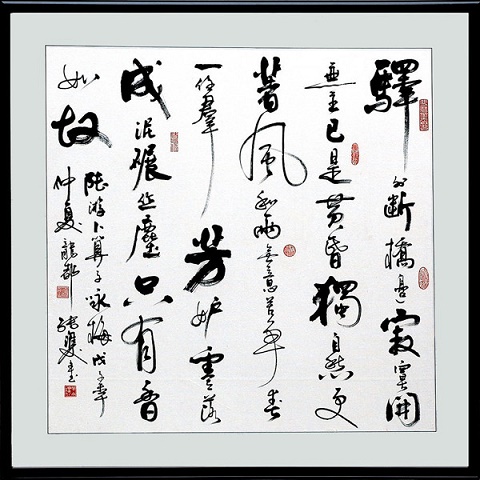 驛外斷橋邊寂寞開
無主已是黄昏獨自愁更
著風和雨無意苦爭春
一任羣芳妒零落
成泥碾作塵只有香
如故
陸游卜算子詠梅戊子年
仲夏龍都